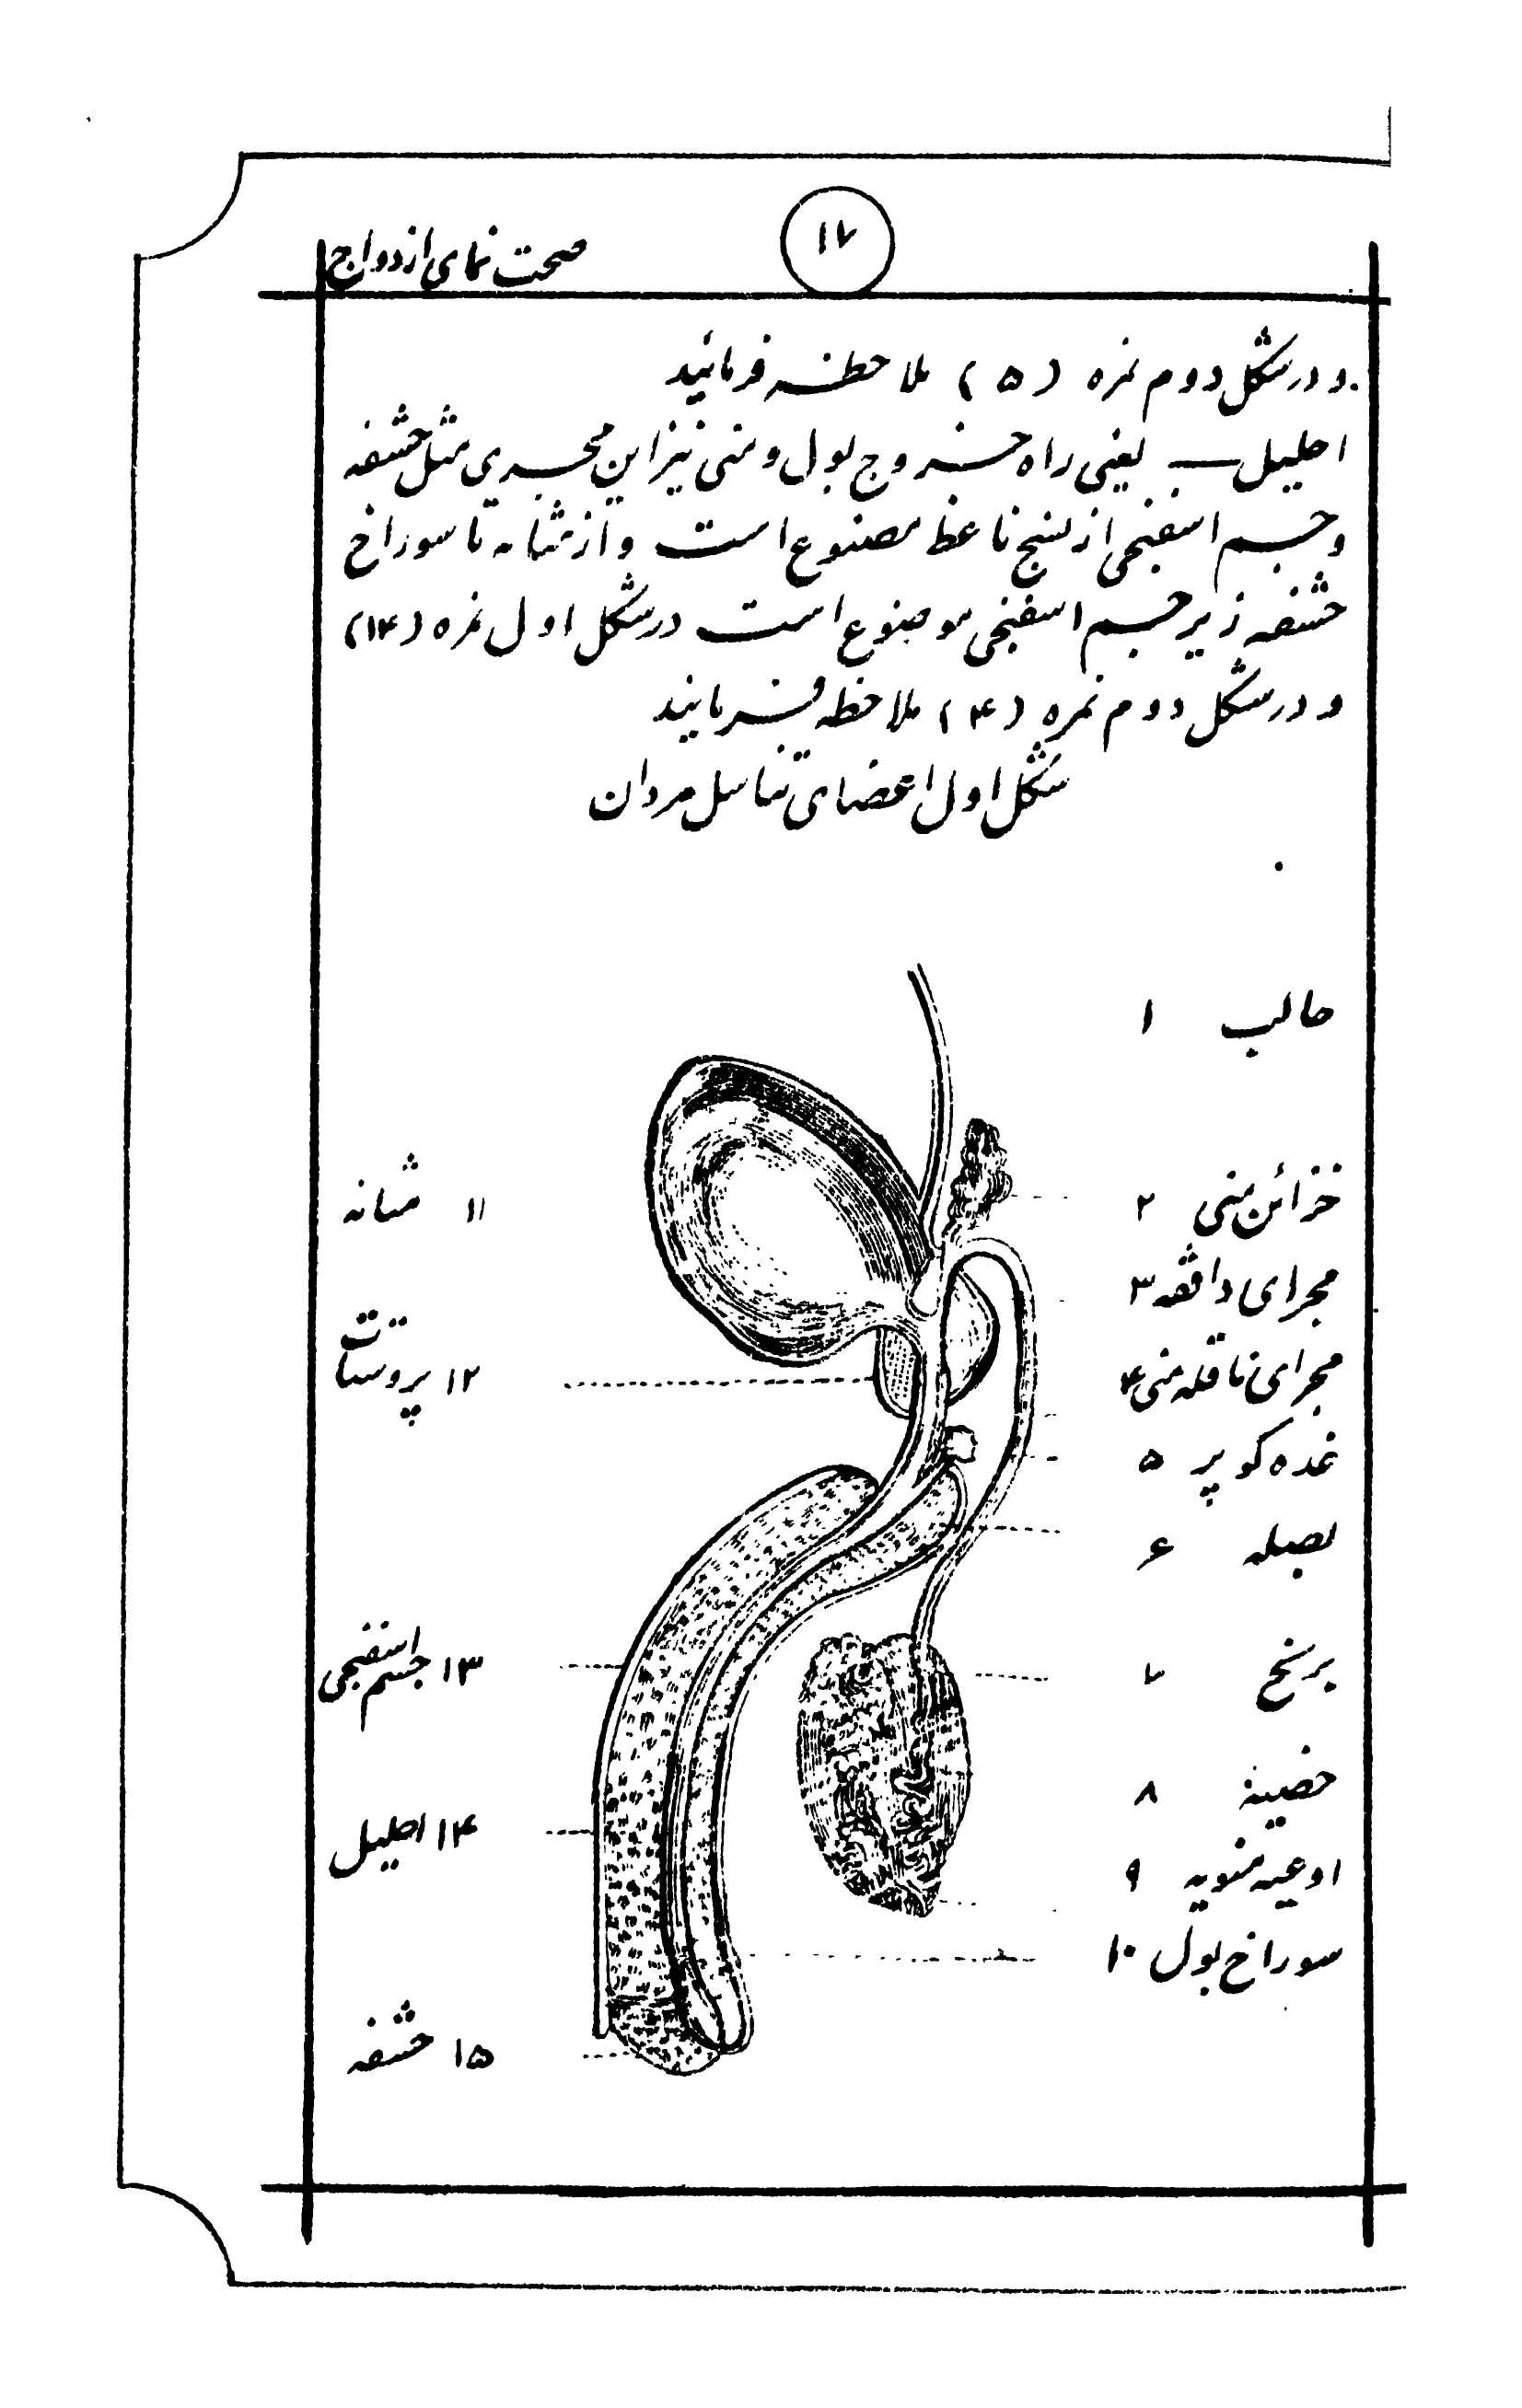 ۱۷
صحت نمای ازدواج
و در شکل دوم نمره (۵) ملاحظه فرمائید
احلیل یعنی راه خروج بول و منی نیز این مجری مثل حشفه
و جسم اسفنجی از نسج ناعظ مصنوع است و از مثانه تا سوراخ
حشفه زیر جسم اسفنجی موضوع است در شکل اول نمره (۱۴)
و در شکل دوم نمره (۴) ملاحظه فرمایند
شکل اول اعضای تناسل مردان
حالب ۱
خزائن منی ۲
مجرای دافقه ۳
مجرای ناقله منی ۴
غده کوپر ۵
بصله ۶
بربخ ۷
خصیة ۸
اوعیه منویه ۹
سوراخ بول ۱۰
۱۱ مثانه
۱۲ پروستات
۱۳ جسم اسفنجی
۱۴ احلیل
۱۵ حشفه